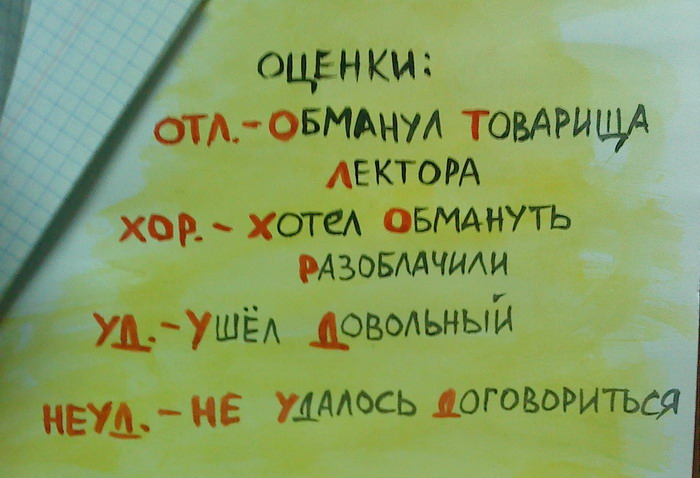 ОЦЕНКИ:
ОТЛ.-ОБМАНУЛ ТОВАРИЩА
ЛЕКТОРА
ХОР. - ХОТЕЛ ОБМАНУТЬ
РАЗОБЛАЧИЛИ
УД.-УШЁЛ ДОВОЛЬНЫЙ
НЕУД. - НЕ УДАЛОСЬ ДОГОВОРИТЬСЯ